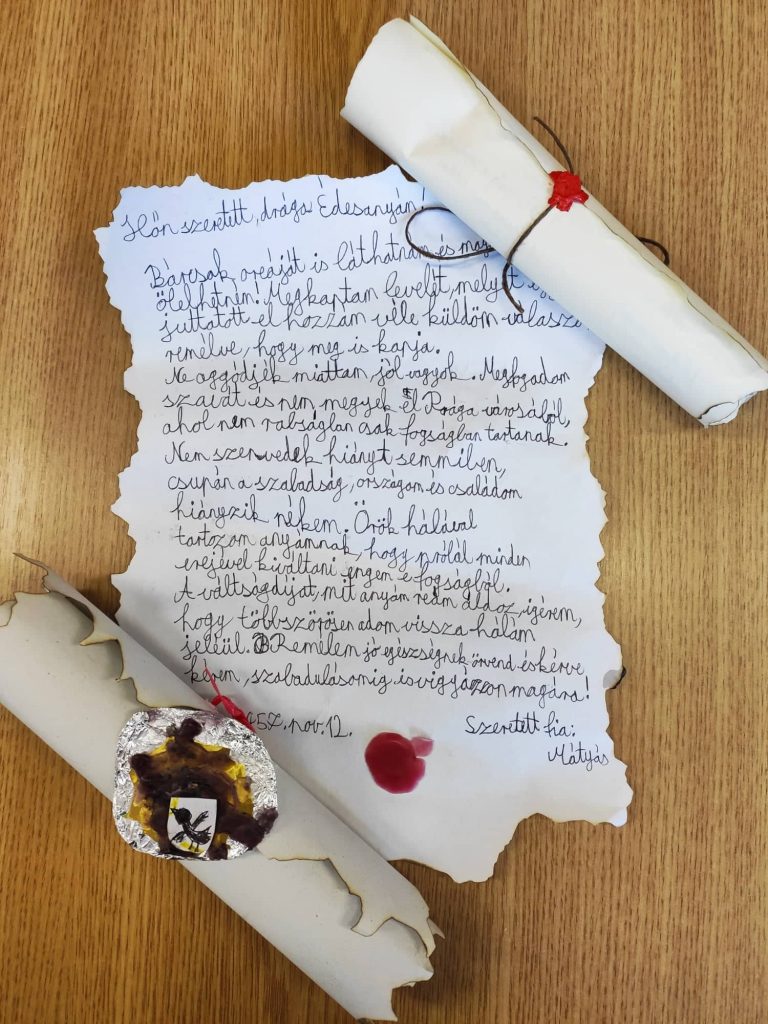 Hőn szeretett, drága Édesanyám!
Bárcsak orcáját is láthatnám és
ölelhetném! Megkaptam levelét, melyet
juttatott el hozzám véle küldöm
remélve, hogy meg is kapja.
Ne aggódjék miattam, jól vagyok. Megfogadom
szavát és nem megyek el Prága városából,
ahol nem rabságban csak fogságban tartanak.
Nem szenvedek hiányt semmiben,
csupán a szabadság, országom és családom
hiányzik nékem. Örök hálával
tartozom anyámnak, hogy próbál minden
erejével kiváltani engem e fogságból.
A váltságdíjat, mit anyám reám áldoz, igérem,
hogy többszörösen adom vissza hálám
jeléül. Remélem jó egészségnek örvend és kérve
kérem, szabadulásomig is vigyázzon magára!
457. nov. 12.
Szeretett fia:
Mátyás